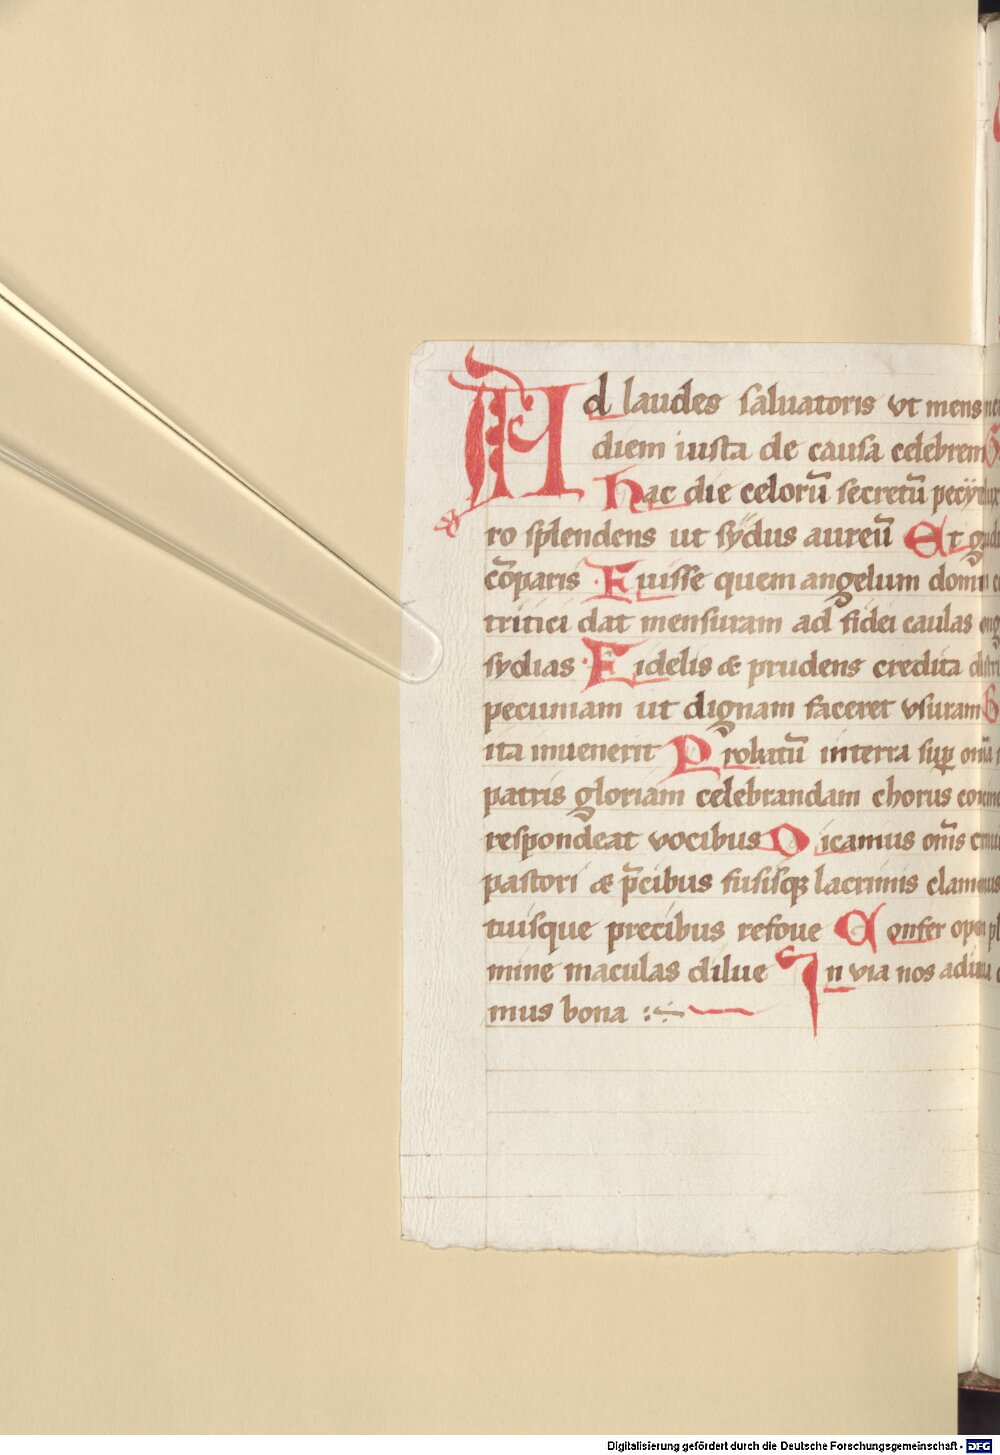 Ad laudes saluatoris vt mens
diem iusta de causa celebrem
hac die celorū secretū
ro splendens ut sydus aureū Et
cōparis Fuisse quem angelum
tritici dat mensuram ad fidei caulas
sydias Fidelis & prudens credita
pecuniam ut dignam faceret vsuram
ita inuenerit Probatū interra suꝑ
patris gloriam celebrandam chorus
respondeat vocibus Dicamus om̄s
pastori & p̄cibus fusisqꝫ lacrimis
tuisque precibus refoue Confer
mine maculas dilue In via nos
mus bona
Digitalisierung gefördert durch die Deutsche Forschungsgemeinschaft - DFG